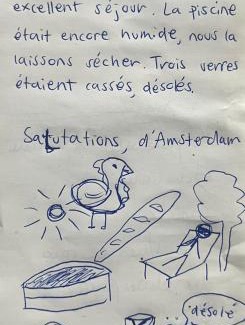 excellent séjour. La piscine
était encore humide, nous la
laissons sécher. Trois verres
étaient cassés, désolés.
Salutations, d'Amsterdam
"désolé"